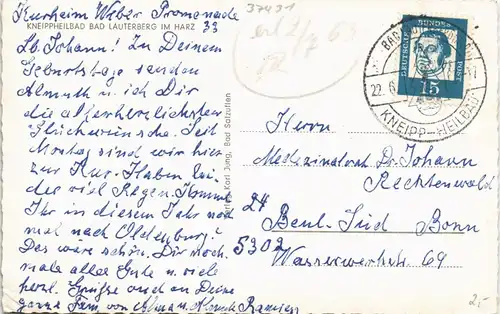 Kurheim Weber Promenade
33
KNEIPPHEILBAD BAD LAUTERBERG IM HARZ
Lb. Johann! Zu Deinem
Geburtstage senden
Almuth u. ich Dir
die allerherzlichsten
Glückwünsche. Seit
Montag sind wir hier
zur Kur. Haben lei-
der viel Regen. Kommt
Ihr in diesem Jahr noch
mal nach Oldenburg?
Das wäre schön. Dir noch-
mals alles Gute u. viele
herzl. Grüße und an Deine
ganze Fam. von
37431
Karl Jung, Bad Salzuflen
DEUTSCHE BUNDESPOST
15
22.6.
KNEIPP-HEILBAD
Herrn
Medizinalrat Dr. Johann
Rechtenwald
24
5302 Beul-Süd Bonn
Wasserwerkstr. 69
2,-